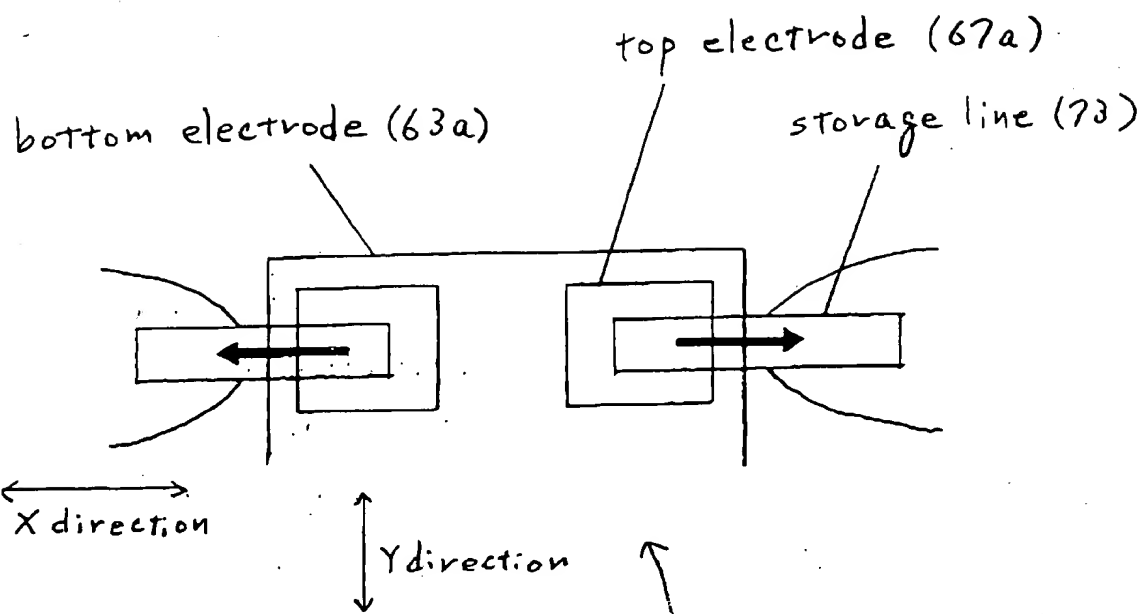 top electrode (67a)
bottom electrode (63a)
storage line (73)
X direction
Y direction